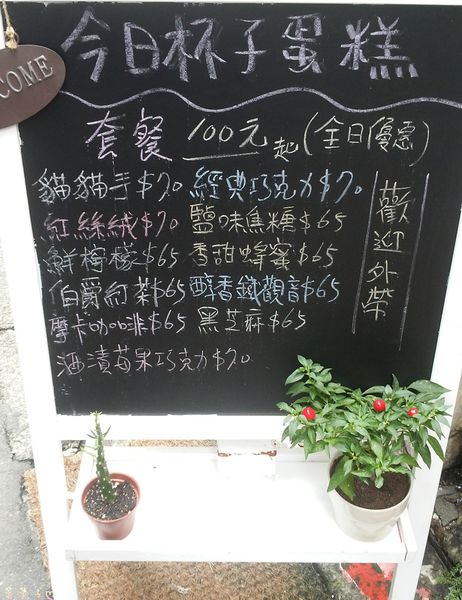 COME
今日杯子蛋糕
套餐 100元起(全日優惠)
貓貓手$70 經典巧克力$70
紅絲絨$70 鹽味焦糖$65
鮮檸檬$65 香甜蜂蜜$65
伯爵紅茶$65 醇香鐵觀音$65
摩卡咖啡$65 黑芝麻$65
酒漬莓果巧克力$70
歡迎外帶